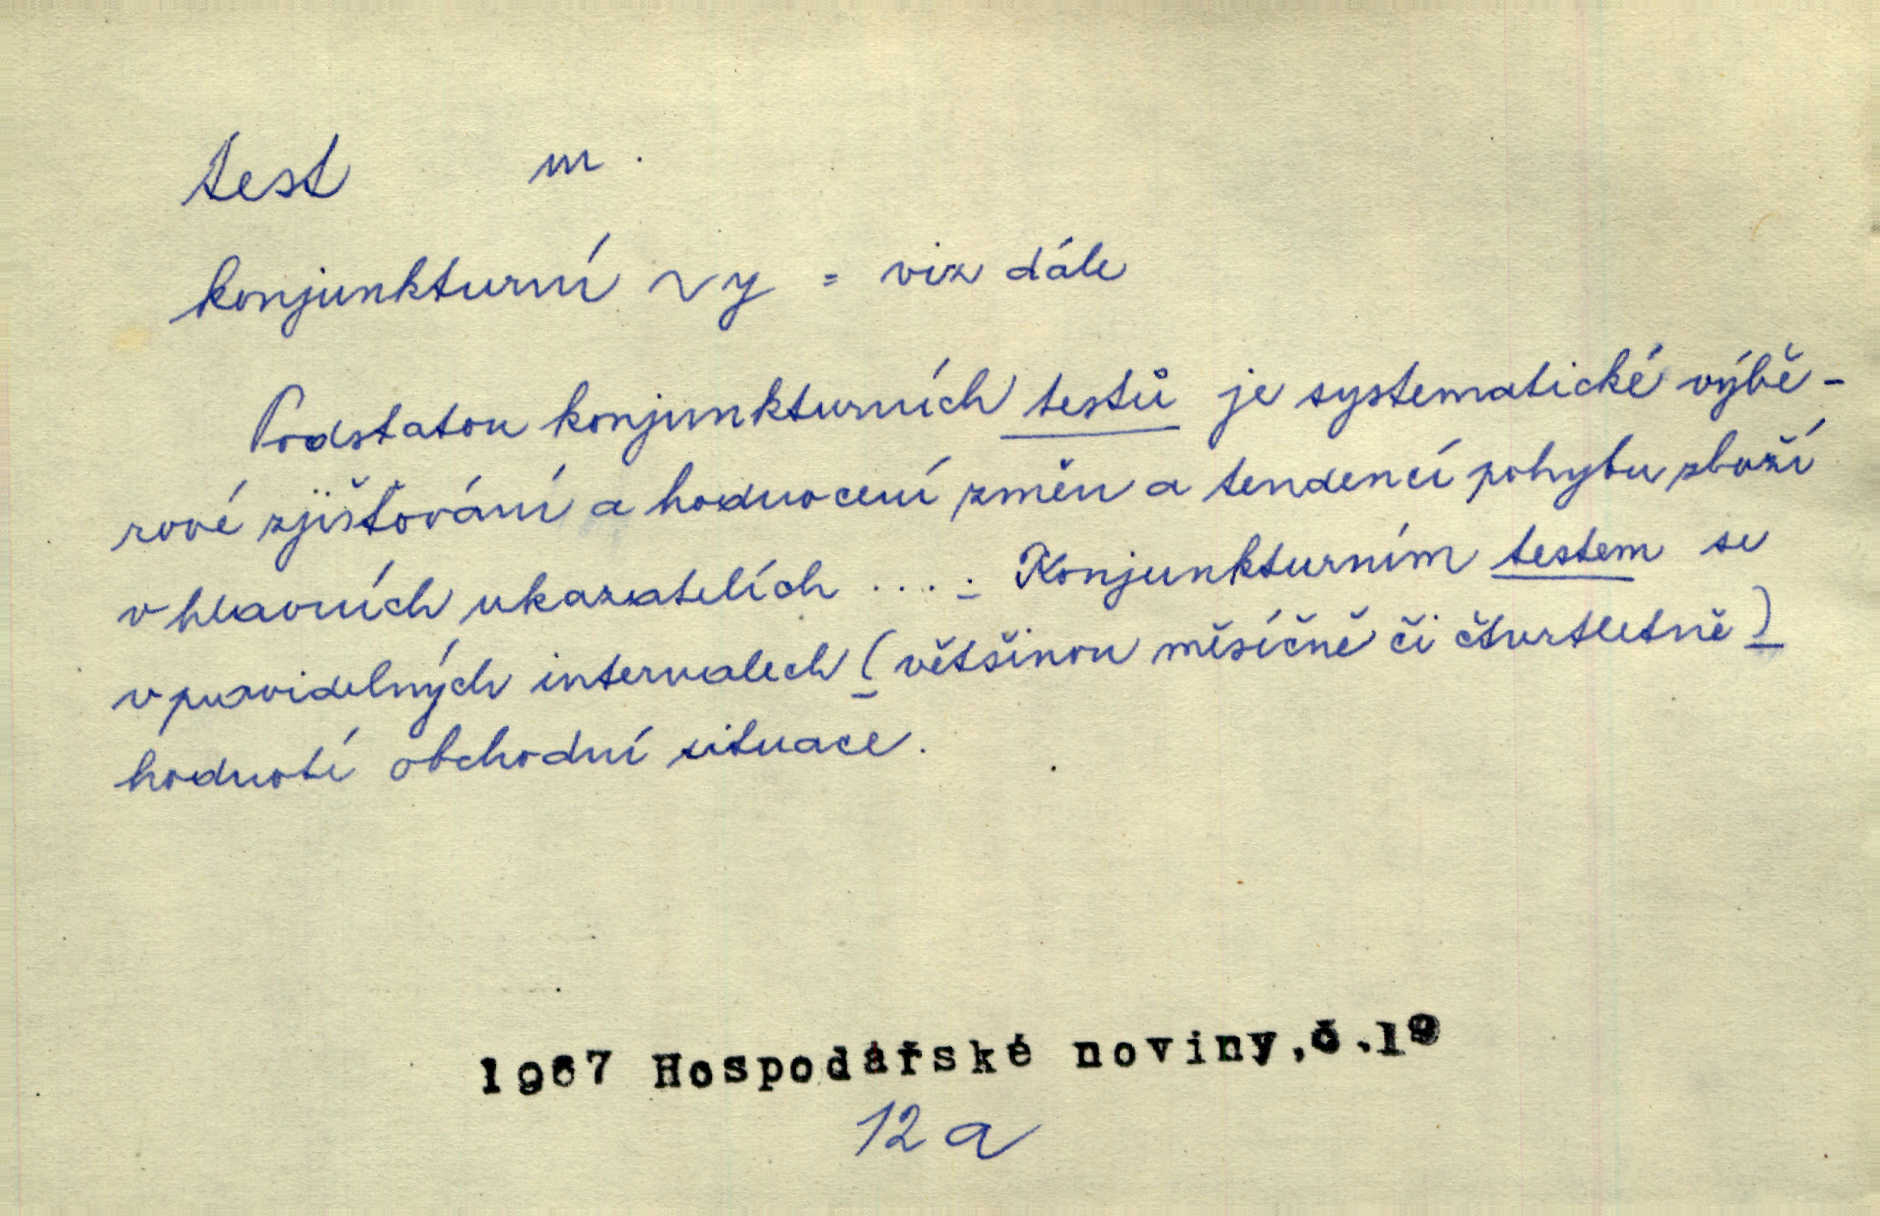 test m.
konjunkturní ~y = viz dále
Podstatou konjunkturních testů je systematické výbě-
rové zjišťování a hodnocení změn a tendencí pohybu zboží
v hlavních ukazatelích ..... Konjunkturním testem se
v pravidelných intervalech (většinou měsíčně či čtvrtletně)
hodnotí obchodní situace.
1967 Hospodářské noviny,č.19
12a